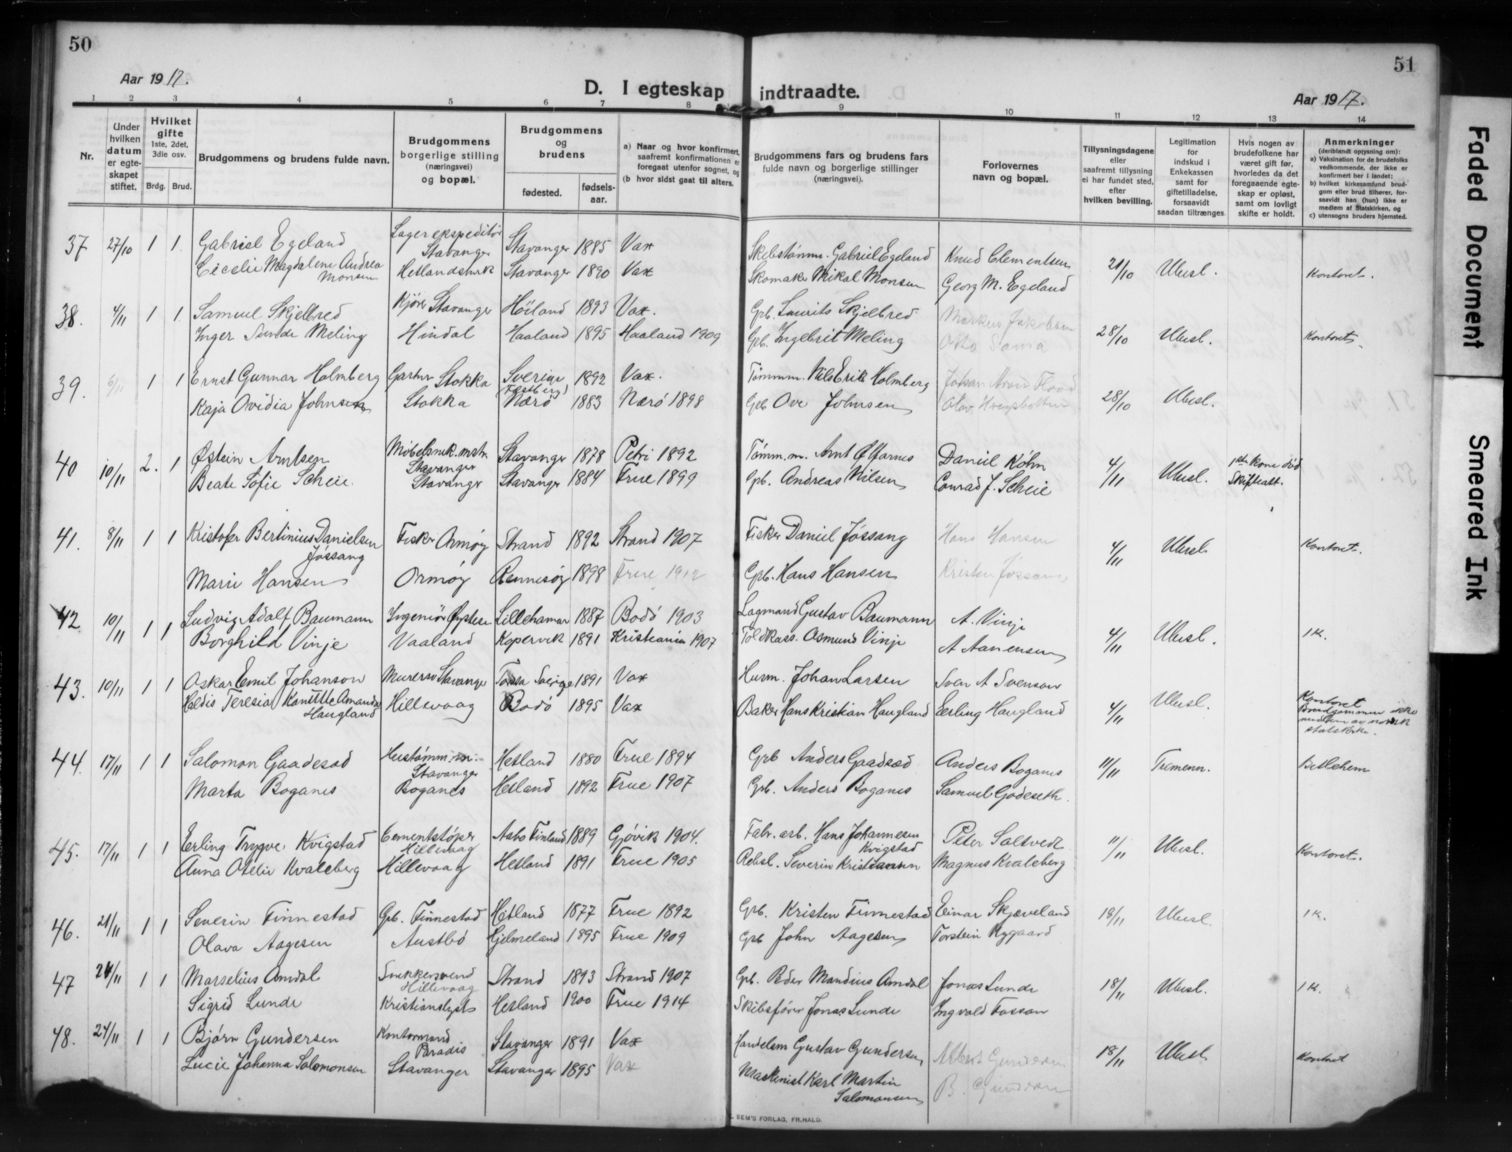 50
51
Aar 1917.
D. I egteskap indtraadte.
Aar 1917.
1 2 3 4 5 6 7 8 9 10 11 12 13 14
Nr.
Under hvilken datum er egteskapet stiftet.
Hvilket gifte 1ste, 2det, 3die osv.
Brdg. Brud.
Brudgommens og brudens fulde navn.
Brudgommens borgerlige stilling (næringsvei) og bopæl.
Brudgommens og brudens
fødested.
fødselsaar.
a) Naar og hvor konfirmert, saafremt konfirmationen er foregaat utenfor sognet, og
(b hvor sidst gaat til alters.
Brudgommens fars og brudens fars fulde navn og borgerlige stillinger (næringsvei).
Forlovernes navn og bopæl.
Tillysningsdagene eller saafremt tillysning ei har fundet sted, efter hvilken bevilling.
Legitimation for indskud i Enkekassen samt for giftetilladelse, forsaavidt saadan tiltrænges
Hvis nogen av brudefolkene har været gift før, hvorledes da det foregaaende egteskap er opløst, samt om lovligt skifte er holdt.
Anmerkninger (deriblandt opysning om):
a) Vaksination for de brudefolks vedkommende, der ikke er konfirmert her i landet;
b) hvilket kirkesamfund brudgom eller brud tilhører, forsaavidt han (hun) ikke er medlem af Statskirken, og
c) utensogns bruders hjemsted.
37 27/10 1 1 Gabriel Egeland Lagerekspeditør Stavanger Stavanger 1885 Vax Skibstømm. Gabriel Egeland Knud Clementsen 21/10 Ubesl. Kontoret.
Cecelie Magdalene Andrea Monsen Hetlandsmrk Stavanger 1890 Vax Skomaker Mikal Monsen Georg M. Egeland
38. 4/11 1 1 Samuel Skjelbred Kjører Stavanger Høiland 1893 Vax. Gpb. Laurits Skjelbred Markus Jakobsen 28/10 Ubesl. Kontoret.
Inger Meling Hindal Haaland 1895 Haaland 1909 Gpb. Ingebrit Meling Otto Sama
39. 1 1 Ernst Gunnar Holmberg Gartner Stokka Sverige 1892 Vax. Tømmm. Nils Erik Holmberg Johan 28/10 Ubesl.
Kaja Ovidia Johnsen Stokka Nærø 1883 Nærø 1898 Gpb Ove Johnsen Olav
40 10/11 2. 1 Østein Arntsen Møbelsnk.mstr. Stavanger Stavanger 1878 Petri 1892 Tømm.m. Arnt Ølfarnes Daniel Køhn 4/11 Ubesl. 1ste kone død Skifteatt.
Beate Sofie Scheie Stavanger Stavanger 1884 Frue 1899 Gpb. Andreas Nilsen Conrad J. Scheie
41. 8/11 1 1 Kristofer Bertinius Danielsen Jøssang Fisker Ormøy Strand 1892 Strand 1907 Fisker Daniel Jøssang Hans Hansen 4/11 Ubesl. Kontoret.
Marie Hansen Ormøy Rennesøy 1898 Frue 1912 Gpb. Hans Hansen Kristen Jøssang
42. 10/11 1 1 Ludvig Adolf Baumann Ingeniør Lillehamar 1887 Bodö 1903 Lagmand Gustav Baumann A. Vinje 4/11 Ubesl. IK.
Borghild Vinje Vaaland Kopervik 1891 Kristiania 1907 Toldkass. Osmund Vinje A Aanensen
43. 10/11 1 1 Oskar Emil Johanson Murersv Stavanger Sverige 1891 Vax Husm. Johan Larsen Sven A Svenson 4/11 Ubesl. Kontoret Brudgommen ikke medlem av norsk statskirke.
Heldis Teresia Amanda Haugland Hillevaag Bodö 1895 Vax Baker Hans Kristian Haugland Eerling Haugland
44. 17/11 1 1 Salomon Gaadesad Stavanger Hetland 1880 Frue 1894 Gpb Anders Gaadsad Anders Boganes 11/11 Tremenn. Betlehem
Marta Boganes Boganes Hetland 1892 Frue 1907 Gpb. Anders Boganes Samuel Godeseth.
45. 17/11 1 1 Erling Trygve Kvigstad Cementstøper Hillevaag Aabo Finland 1889 Gjövik 1904. Fabr. arb. Hans Johannesen Kvigstad Peter Saltvedt 11/11 Ubesl. Kontoret.
Anna Otelie Kvaleberg Hillevaag Hetland 1891 Frue 1905 Rebsl. Severin Kristiansen Magnus Kvaleberg
46. 21/11 1 1 Severin Finnestad Gpb. Finnestad Hetland 1877 Frue 1892 Gpb. Kristen Finnestad Einar Skjæveland 18/11 Ubesl. IK.
Olava Aagesen Austbø Hjelmeland 1895 Frue 1909 Gpb John Aagesen Torstein Rygaard
47 24/11 1 1 Marselius Amdal Snekkersvend Hillevaag Strand 1893 Strand 1907 Gpb. Peder Mandius Amdal Jonas Lunde 18/11 Ubesl. IK.
Sigrid Lunde Kristianslyst Hetland 1900 Frue 1914 Skibsfører Jonas Lunde Ingvald Fossan
48. 24/11 1 1 Bjørn Gundersen Kontormand Paradis Stavanger 1891 Vax Handelsm Gustav Gundersen Albert Gundersen 18/11 Ubesl. Kontoret
Lucie Johanna Salomonsen Stavanger Stavanger 1895 Vax Maskinist Karl Martin Salomonsen B. Gundersen
SEM'S FORLAG, FR.HALD.
Faded Document
Smeared Ink